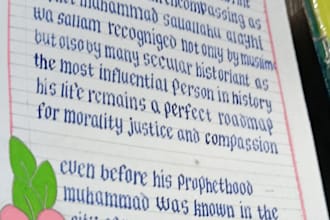 encompassing as
muhammad sallallahu alayhi
wa sallam recogniged not only by muslims
but also by many secular historiant as
the most influential person in history
his life remains a perfect roadmap
for morality justice and compassion
even before his prophethood
muhammad was known in the